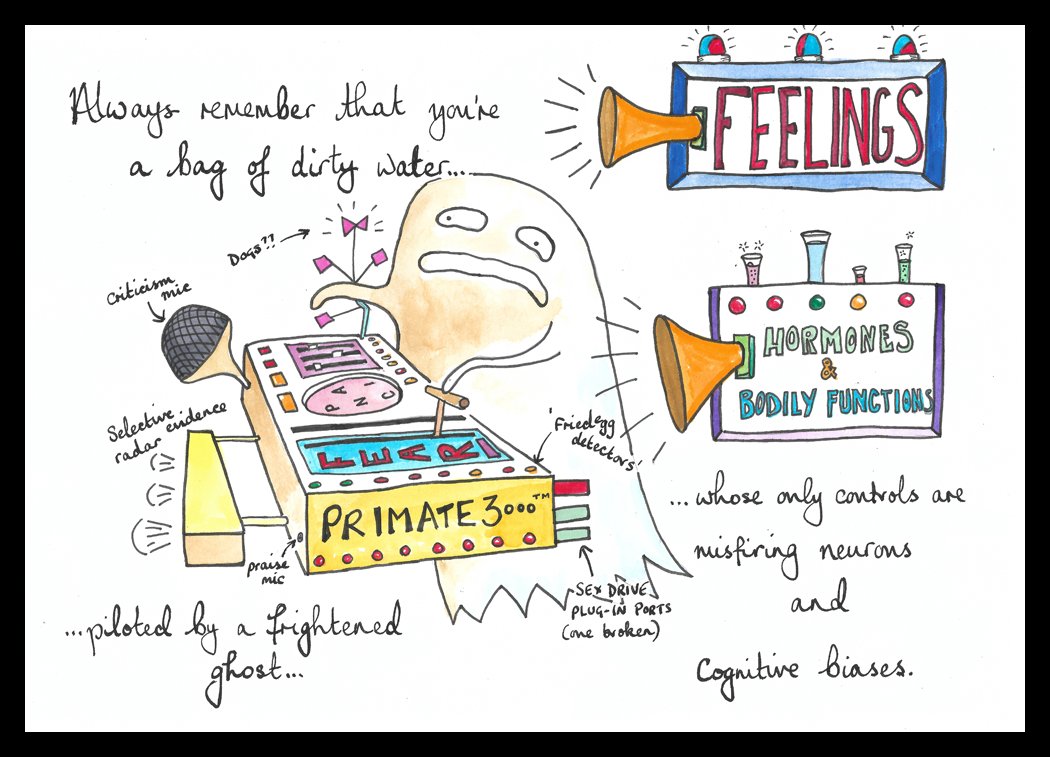 Always remember that you're
a bag of dirty water...
FEELINGS
Dogs??
Criticism
mic
HORMONES
&
BODILY FUNCTIONS
PANIC
Selective
radar evidence
FEAR!
'Fried egg
detectors'
PRIMATE 3000™
praise
mic
SEX DRIVE
PLUG-IN PORTS
(one broken)
...piloted by a frightened
ghost...
...whose only controls are
misfiring neurons
and
Cognitive biases.